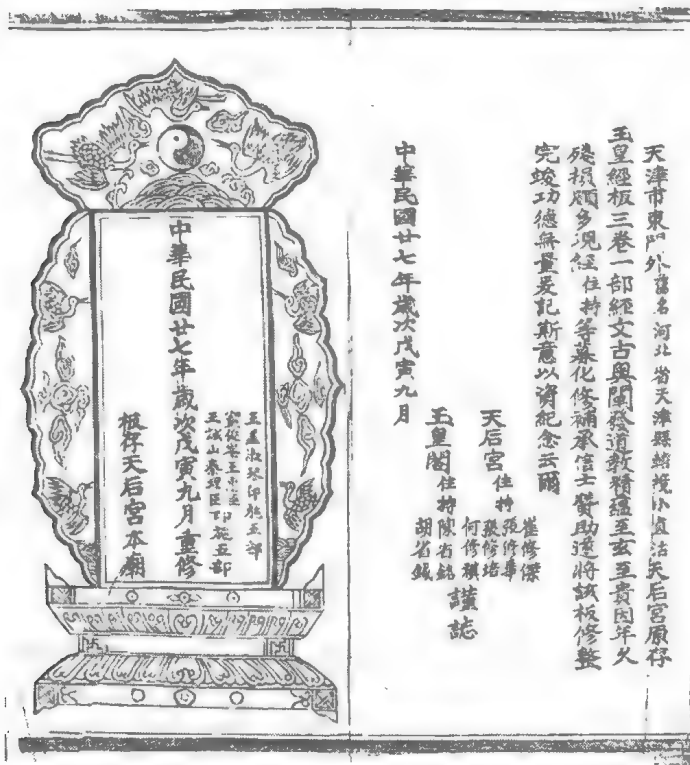 天津市東門外舊名河北省天津縣轄境小直沽天后宮原存
玉皇經板三卷一部經文古奧闡發道教精蘊至玄至貴因年久
殘損頗多現經住持等募化修補承信士贊助遂將該板修整
完竣功德無量爰記斯意以資紀念云爾
天后宮住持
崔修傑
張修華
張修培
何修祺
玉皇閣住持
陳省銘
胡省鉞
謹誌
中華民國廿七年歲次戊寅九月
中華民國廿七年歲次戊寅九月重修
王孟淑琴印施五部
王誠山秦理臣印施五部
板存天后宮本廟